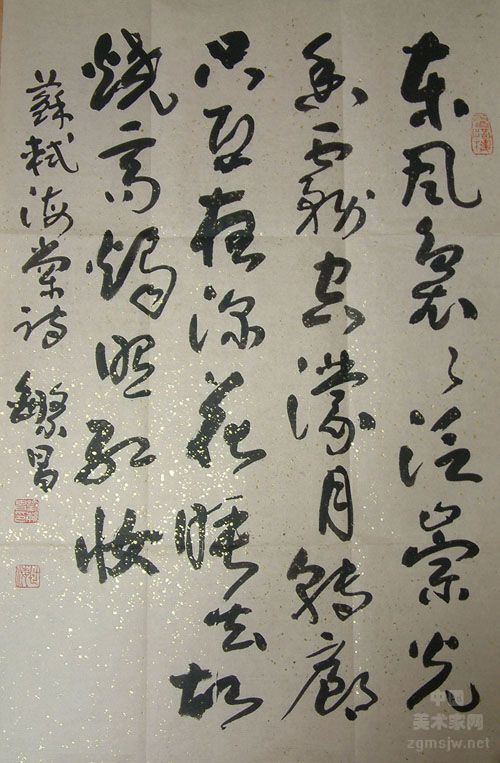 东風袅々泛崇光
香霧空濛月转廊
只恐夜深花睡去故
燒高燭照红妆
蘇轼海棠诗 繁昌
中国
美术家网
zgmsjw.net